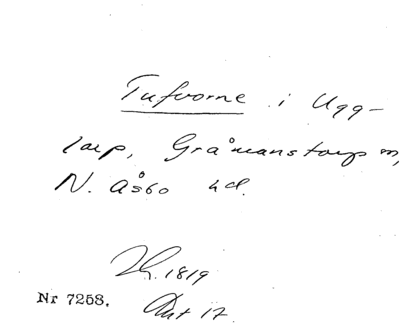 Tufvorne i Ugg-
larp, Gråmanstorps sn,
N. Åsbo hd.
1819
Nr 7258. Akt 17